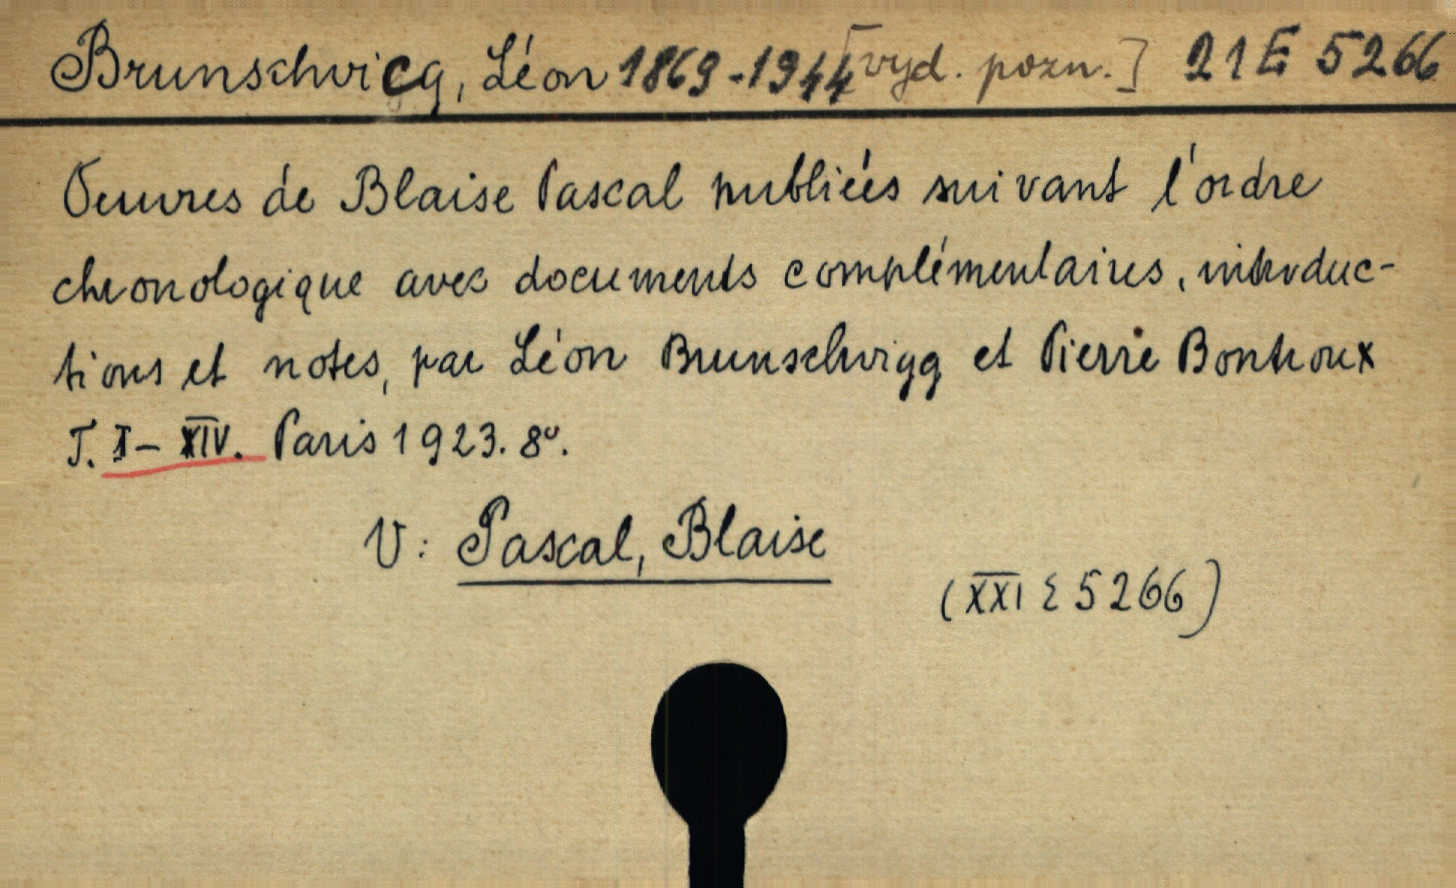 Brunschvicq, Léon 1869-1944 [vyd. pozn.] 21 E 5266
Oeuvres de Blaise Pascal publiées suivant l'ordre
chronologique avec documents complémentaires, introduc-
tions et notes, par Léon Brunschvigg et Pierre Bontroux
T. I-XIV. Paris 1923. 8°.
V: Pascal, Blaise
(XXI E 5266)